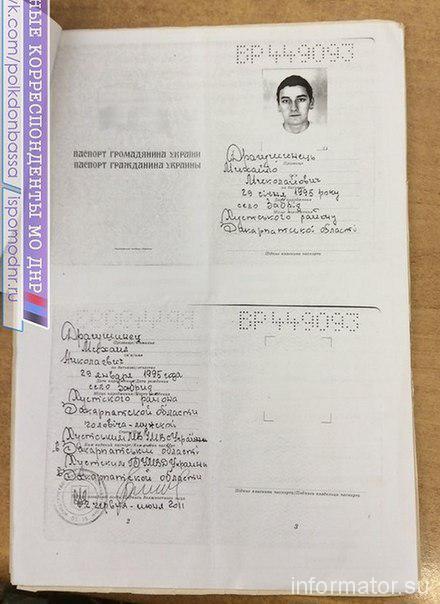 НЫЕ КОРРЕСПОНДЕНТЫ МО ДНР
vk.com/polkdonbassa / ispomodnr.ru
ВР449093
ПАСПОРТ ГРОМАДЯНИНА УКРАЇНИ
ПАСПОРТ ГРАЖДАНИНА УКРАИНЫ
Михайло
Миколайович
29 січня 1995 року
село Забрід
Хустського району
Закарпатської області
Підпис власника паспорта
ВР449093
Михаил
Николаевич
29 января 1995 года
село Забрид
Хустского района
Закарпатской области
чоловіча-мужской
Хустським МВ УМВС України
в Закарпатській області
Закарпатской области
червня-июня 2011
2
Підпис власника паспорта/Подпись владельца паспорта
3
informator.su